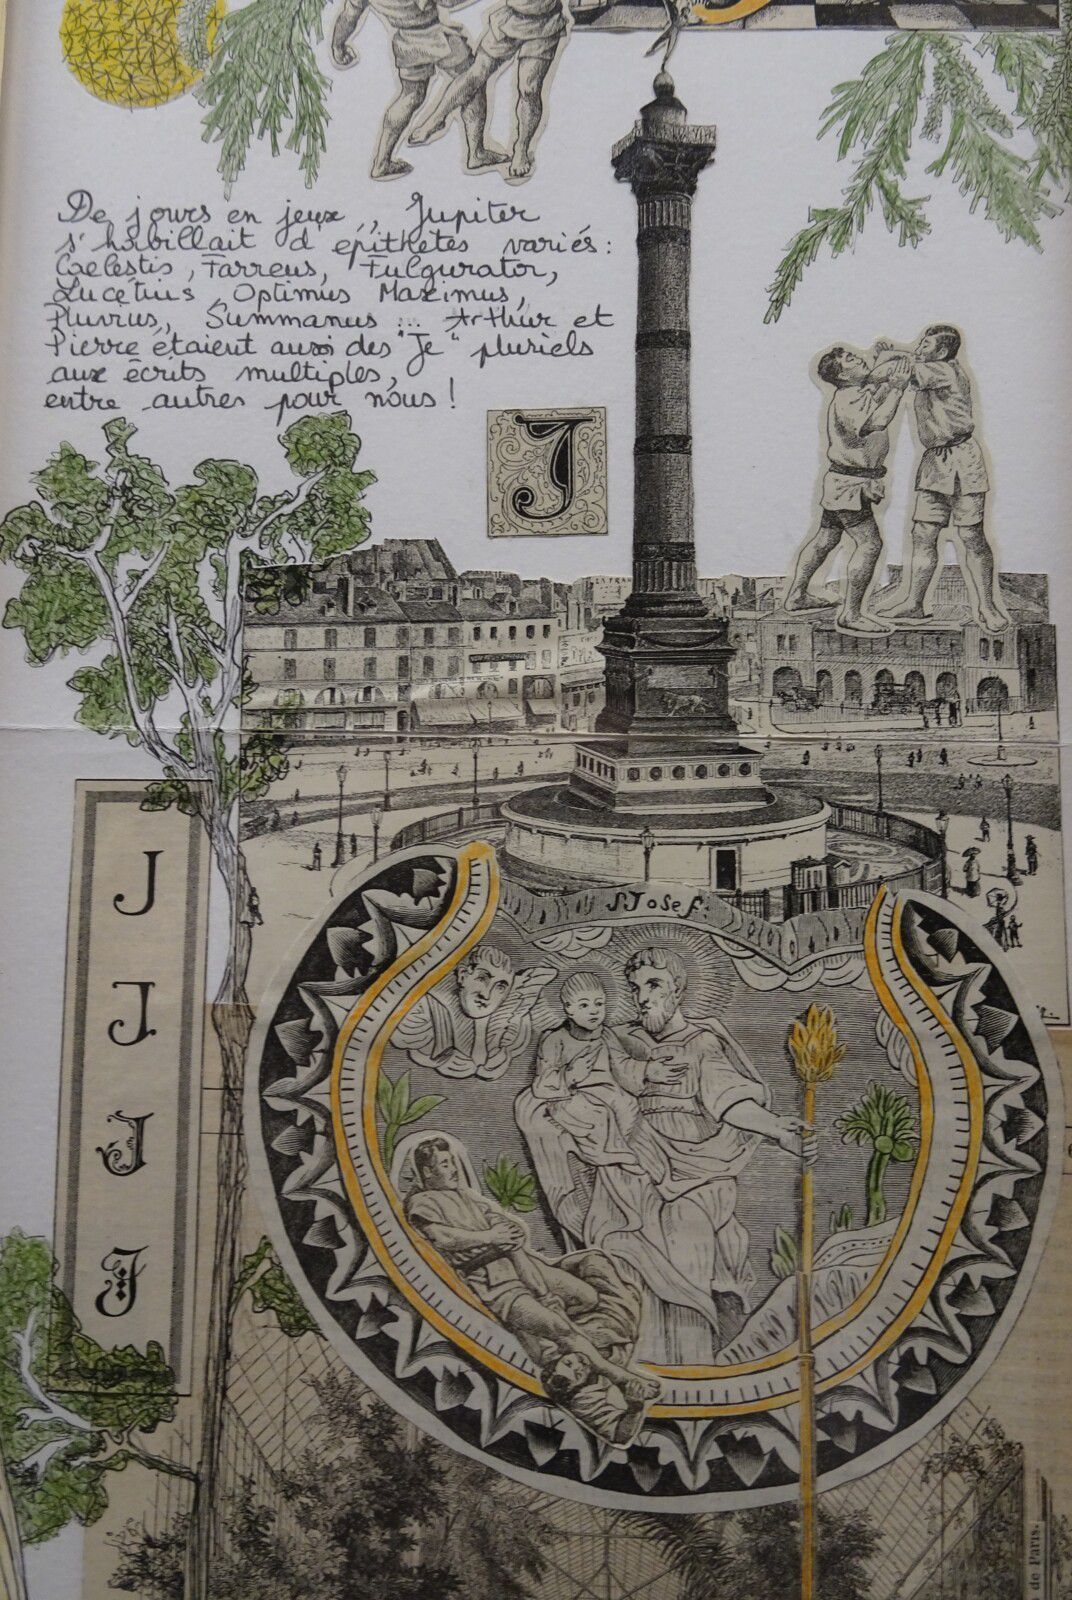 De jours en jeux,, Jupiter
s'habillait d'épithètes variés :
Caelestis, Farreus, Fulgurator,
Lucétius, Optimus Maximus,
Pluvius, Summanus ... Arthur et
Pierre étaient aussi des "Je" pluriels
aux écrits multiples,
entre autres pour nous !
J
J
J
J
J
S. JOSEF.
de Paris.